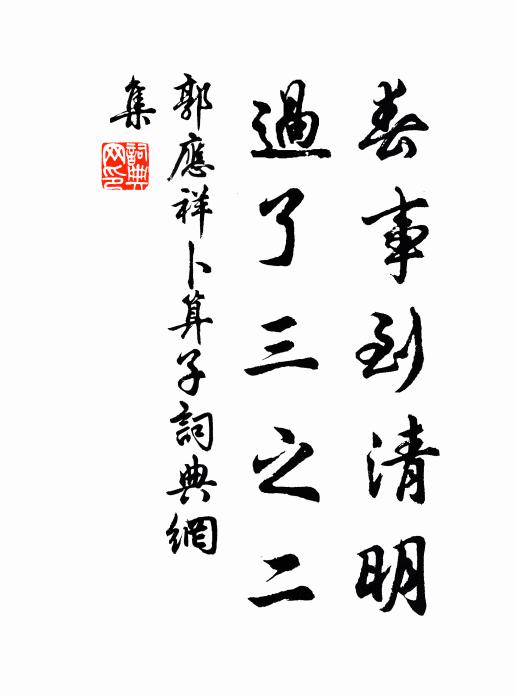 春事到清明
過了三之二
郭應祥卜算子詞典網
集
詞典
网印